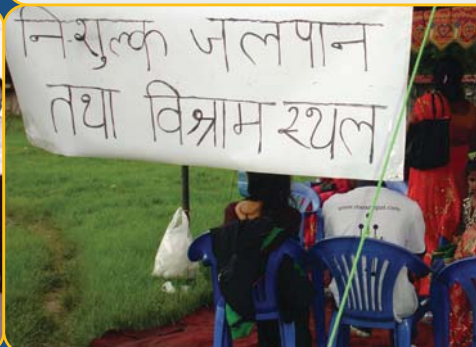 नि:शुल्क जलपान
तथा विश्राम स्थल